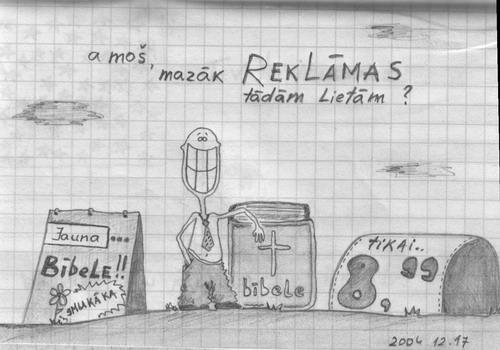 a moš,
mazāk REKLĀMAS
tādām Lietām ?
Jauna ...
BībeLE!!
SMUKĀKA
bībele
tiKAi..
8.99
2004 12.17